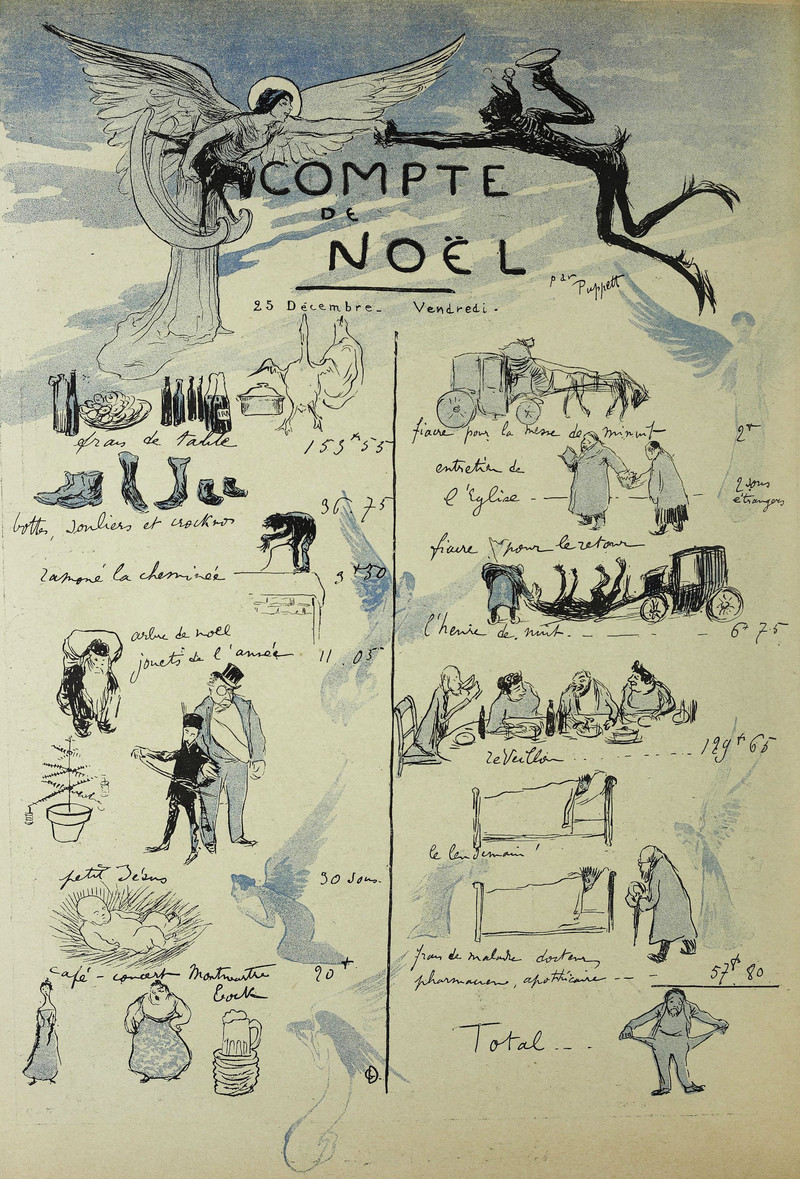 COMPTE
DE
NOËL
par Puppett
25 Décembre - Vendredi -
frais de table 153 f 55
bottes, souliers et 36 75
ramoné la cheminée 3 f 50
arbre de noel
jouets de l'année 11.05
petit Jésus 30 sous.
café-concert Montmartre 20 f
bock
fiacre pour la messe de minuit 2 f
entretien de
l'Eglise - 2 sous
étrangers
fiacre pour le retour
l'heure de nuit. - - - 6 f 75
reveillon ........ 129 f 65
le lendemain!
frais de maladie docteur,
pharmacien, apothicaire - - 57 f. 80
Total - - .